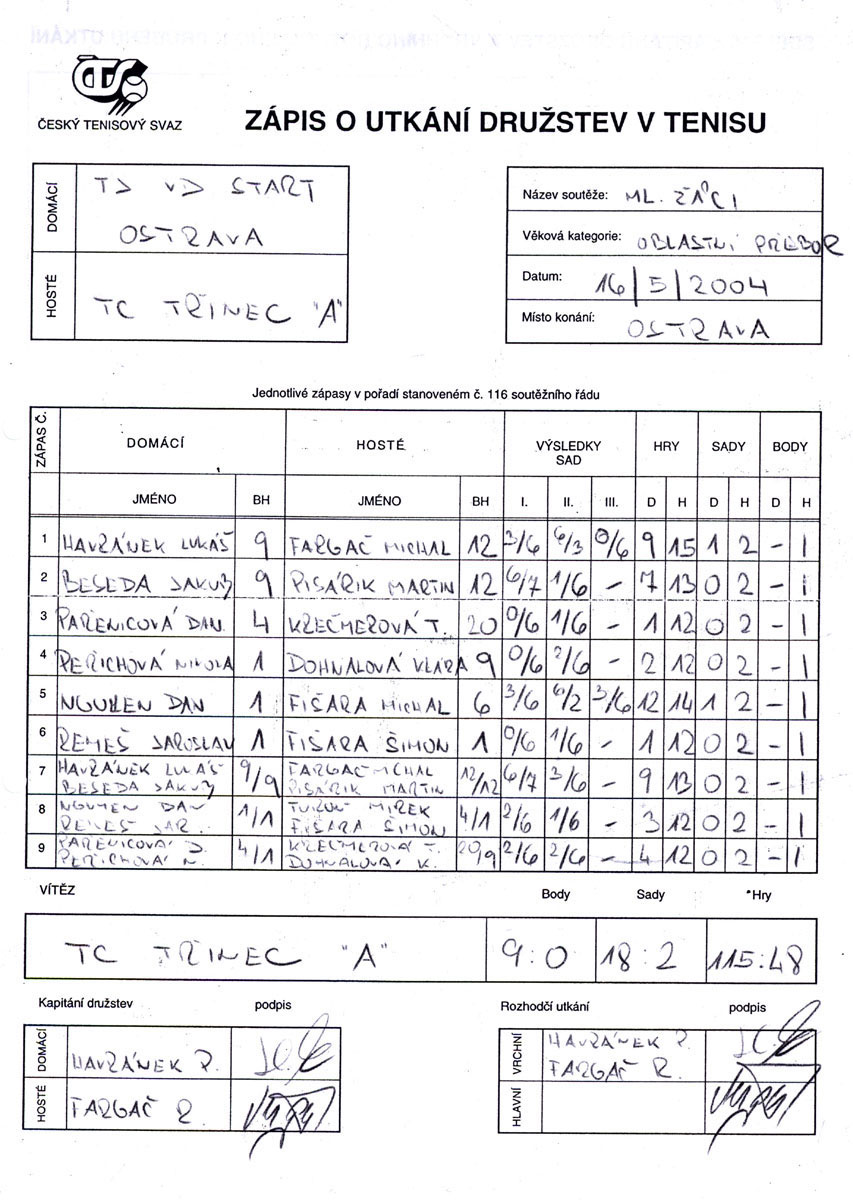 ČTS
ČESKÝ TENISOVÝ SVAZ
ZÁPIS O UTKÁNÍ DRUŽSTEV V TENISU
DOMÁCÍ
TJ VD START
OSTRAVA
HOSTÉ
TC TŘINEC "A"
Název soutěže: ML. ŽÁCI
Věková kategorie: OBLASTNÍ PŘEBOR
Datum: 16/5/2004
Místo konání: OSTRAVA
Jednotlivé zápasy v pořadí stanoveném č. 116 soutěžního řádu
ZÁPAS Č. DOMÁCÍ HOSTÉ VÝSLEDKY SAD HRY SADY BODY
JMÉNO BH JMÉNO BH I. II. III. D H D H D H
1 HAVRÁNEK LUKÁŠ 9 FARGAČ MICHAL 12 3/6 6/3 0/6 9 15 1 2 - 1
2 BESEDA JAKUB 9 PISÁRIK MARTIN 12 6/7 1/6 - 7 13 0 2 - 1
3 PAŘENICOVÁ DAN. 4 KREČMEROVÁ T. 20 0/6 1/6 - 1 12 0 2 - 1
4 PEŘICHOVÁ NIKOLA 1 DOHNALOVÁ KLÁRA 9 0/6 2/6 - 2 12 0 2 - 1
5 NGUYEN DAN 1 FIŠARA MICHAL 6 3/6 6/2 3/6 12 14 1 2 - 1
6 REMEŠ JAROSLAV 1 FIŠARA ŠIMON 1 0/6 1/6 - 1 12 0 2 - 1
7 HAVRÁNEK LUKÁŠ 9/9 FARGAČ MICHAL 12/12 6/7 3/6 - 9 13 0 2 - 1
BESEDA JAKUB PISÁRIK MARTIN
8 NGUYEN DAN 1/1 MIREK 4/1 2/6 1/6 - 3 12 0 2 - 1
REMEŠ JAR. FIŠARA ŠIMON
9 PAŘENICOVÁ D. 4/1 KREČMEROVÁ T. 20/9 2/6 2/6 - 4 12 0 2 - 1
PEŘICHOVÁ N. DOHNALOVÁ K.
VÍTĚZ Body Sady Hry
TC TŘINEC "A" 9:0 18:2 115:48
Kapitáni družstev podpis
DOMÁCÍ HAVRÁNEK P.
HOSTÉ FARGAČ R.
Rozhodčí utkání podpis
VRCHNÍ HAVRÁNEK P.
FARGAČ R.
HLAVNÍ